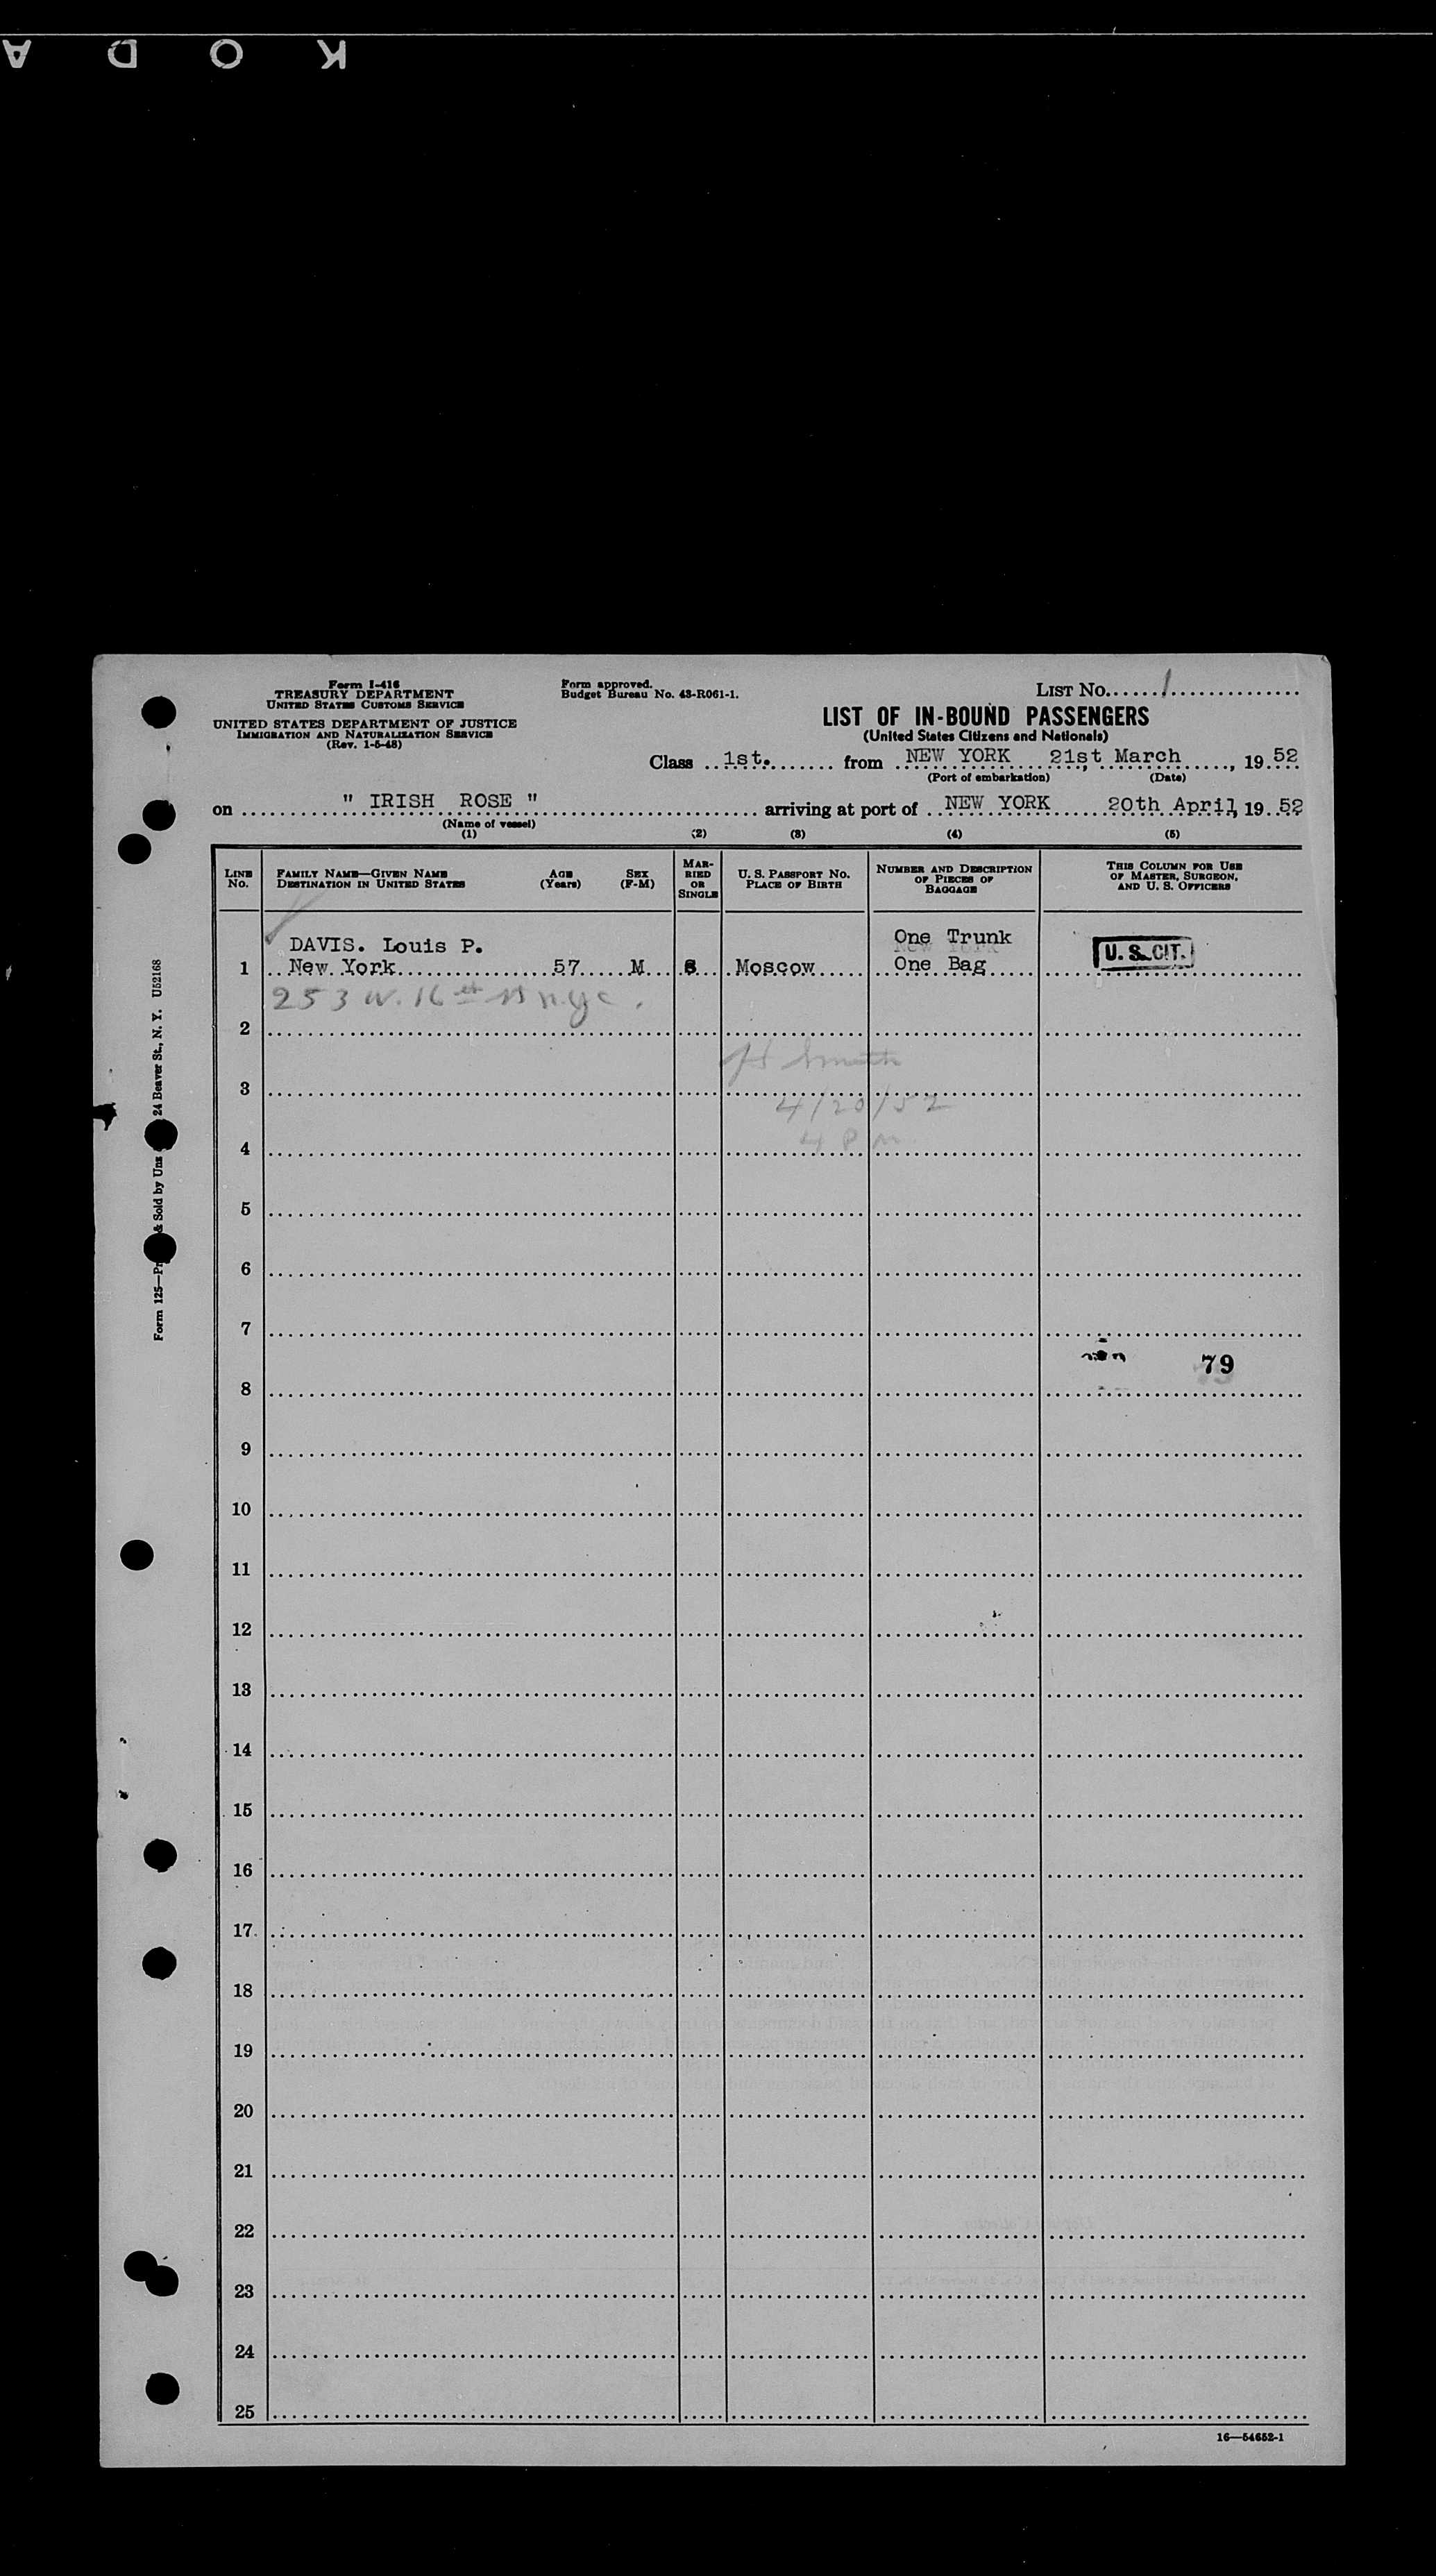 KODA
Form I-416
TREASURY DEPARTMENT
UNITED STATES CUSTOMS SERVICE
UNITED STATES DEPARTMENT OF JUSTICE
IMMIGRATION AND NATURALIZATION SERVICE
(Rev. 1-5-48)
Form approved.
Budget Bureau No. 43-R061-1.
LIST No. 1
LIST OF IN-BOUND PASSENGERS
(United States Citizens and Nationals)
Class 1st. from NEW YORK 21st March, 19 52
(Port of embarkation) (Date)
on " IRISH ROSE " arriving at port of NEW YORK 20th April, 19 52
(Name of vessel)
(1) (2) (3) (4) (5)
LINE No. FAMILY NAME—GIVEN NAME DESTINATION IN UNITED STATES AGE (Years) SEX (F-M) MARRIED OR SINGLE U. S. PASSPORT NO. PLACE OF BIRTH NUMBER AND DESCRIPTION OF PIECES OF BAGGAGE THIS COLUMN FOR USE OF MASTER, SURGEON, AND U. S. OFFICERS
DAVIS. Louis P. One Trunk
1 New York 57 M S Moscow One Bag U. S. CIT.
253 W. 16 et St n.y.c.
2
Smith
3
4/20/52
4 P M
4
5
6
7
79
8
9
10
11
12
13
14
15
16
17
18
19
20
21
22
23
24
25
16—54652-1
Form 125— & Sold by Unz 24 Beaver St., N. Y. U52168